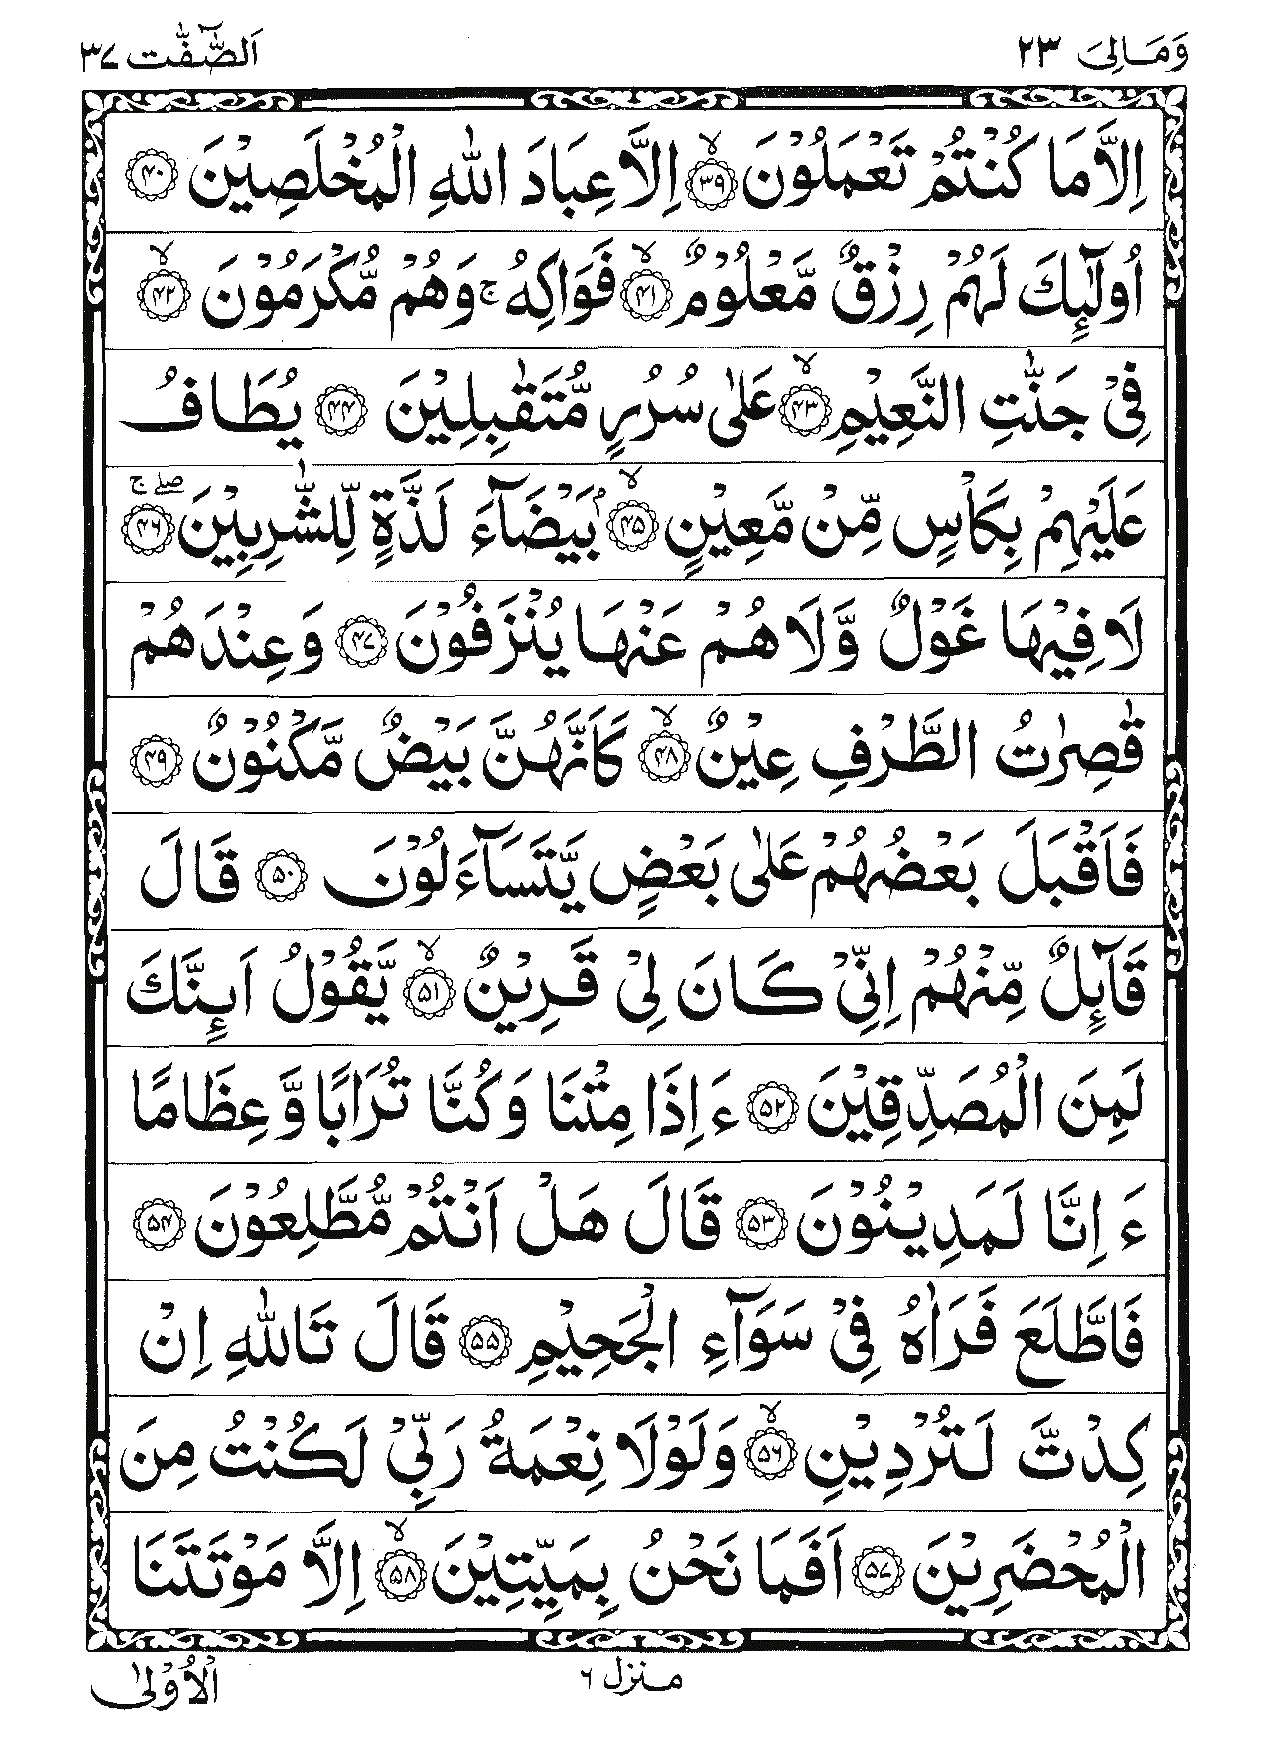 وَمَـالِیَ ۲۳
اَلصّٰٓفّٰت ۳۷
اِلَّا مَا كُنْتُمْ تَعْمَلُوْنَ ۙ﴿۳۹﴾ اِلَّا عِبَادَ اللّٰهِ الْمُخْلَصِيْنَ ﴿۴۰﴾
اُولٰٓئِكَ لَهُمْ رِزْقٌ مَّعْلُوْمٌ ۙ﴿۴۱﴾ فَوَاكِهُ ۚ وَهُمْ مُّكْرَمُوْنَ ۙ﴿۴۲﴾
فِیْ جَنّٰتِ النَّعِيْمِ ۙ﴿۴۳﴾ عَلٰى سُرُرٍ مُّتَقٰبِلِيْنَ ﴿۴۴﴾ يُطَـافُ
عَلَيْهِمْ بِكَاْسٍ مِّنْ مَّعِيْنٍۭ ۙ﴿۴۵﴾ بَيْضَآءَ لَذَّةٍ لِّلشّٰرِبِيْنَ ۖۚ﴿۴۶﴾
لَا فِيْهَا غَوْلٌ وَّلَا هُمْ عَنْهَا يُنْزَفُوْنَ ﴿۴۷﴾ وَعِنْدَهُمْ
قٰصِرٰتُ الطَّرْفِ عِيْنٌ ۙ﴿۴۸﴾ كَاَنَّهُنَّ بَيْضٌ مَّكْنُوْنٌ ﴿۴۹﴾
فَاَقْبَلَ بَعْضُهُمْ عَلٰى بَعْضٍ يَّتَسَآءَلُوْنَ ﴿۵۰﴾ قَالَ
قَآئِلٌ مِّنْهُمْ اِنِّیْ كَانَ لِیْ قَرِيْنٌ ۙ﴿۵۱﴾ يَّقُوْلُ اَئِنَّكَ
لَمِنَ الْمُصَدِّقِيْنَ ﴿۵۲﴾ ءَاِذَا مِتْنَا وَكُنَّا تُرَابًا وَّعِظَامًا
ءَاِنَّا لَمَدِيْنُوْنَ ﴿۵۳﴾ قَالَ هَلْ اَنْتُمْ مُّطَّلِعُوْنَ ﴿۵۴﴾
فَاطَّلَعَ فَرَاٰهُ فِیْ سَوَآءِ الْجَحِيْمِ ﴿۵۵﴾ قَالَ تَاللّٰهِ اِنْ
كِدْتَّ لَتُرْدِيْنِ ۙ﴿۵۶﴾ وَلَوْلَا نِعْمَةُ رَبِّیْ لَكُنْتُ مِنَ
الْمُحْضَرِيْنَ ﴿۵۷﴾ اَفَمَا نَحْنُ بِمَيِّتِيْنَ ۙ﴿۵۸﴾ اِلَّا مَوْتَتَنَا
منزل ۶
الْاُوْلٰى